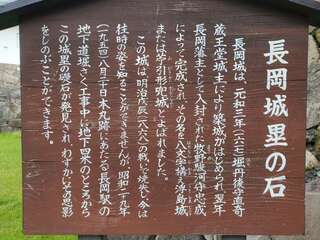 長岡城里の石
長岡城は、元和二年(一六一六)堀丹後守直寄
蔵王堂城主により築城がはじめられ、翌年
長岡藩主として入封された牧野駿河守忠成
によって完成され、その名を八文字構え浮島城
または苧引形兜城とよばれました。
この城は、明治戊辰(一八六八)の戦いで焼失し、今は
往時の姿を知ることができませんが、昭和二十九年
(一九五四)八月二十日本丸跡にあたる長岡駅の
地下道堀さく工事中に地下四米のところから
この城里の礎石が発見され、わずかにその思影
をしのぶことができます。